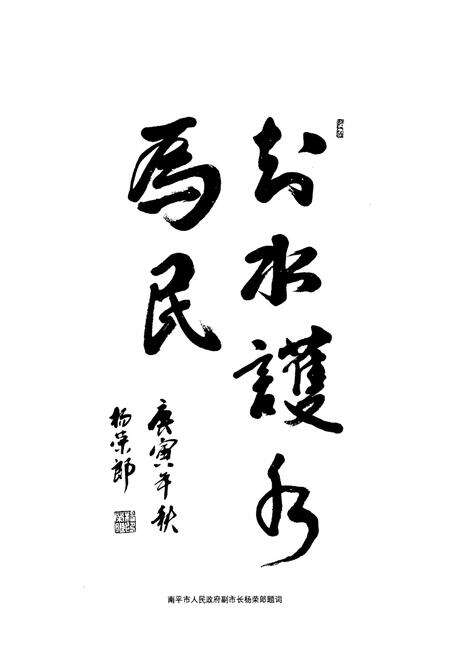 知水護水
為民
庚寅年秋
杨荣郎
南平市人民政府副市长杨荣郎题词